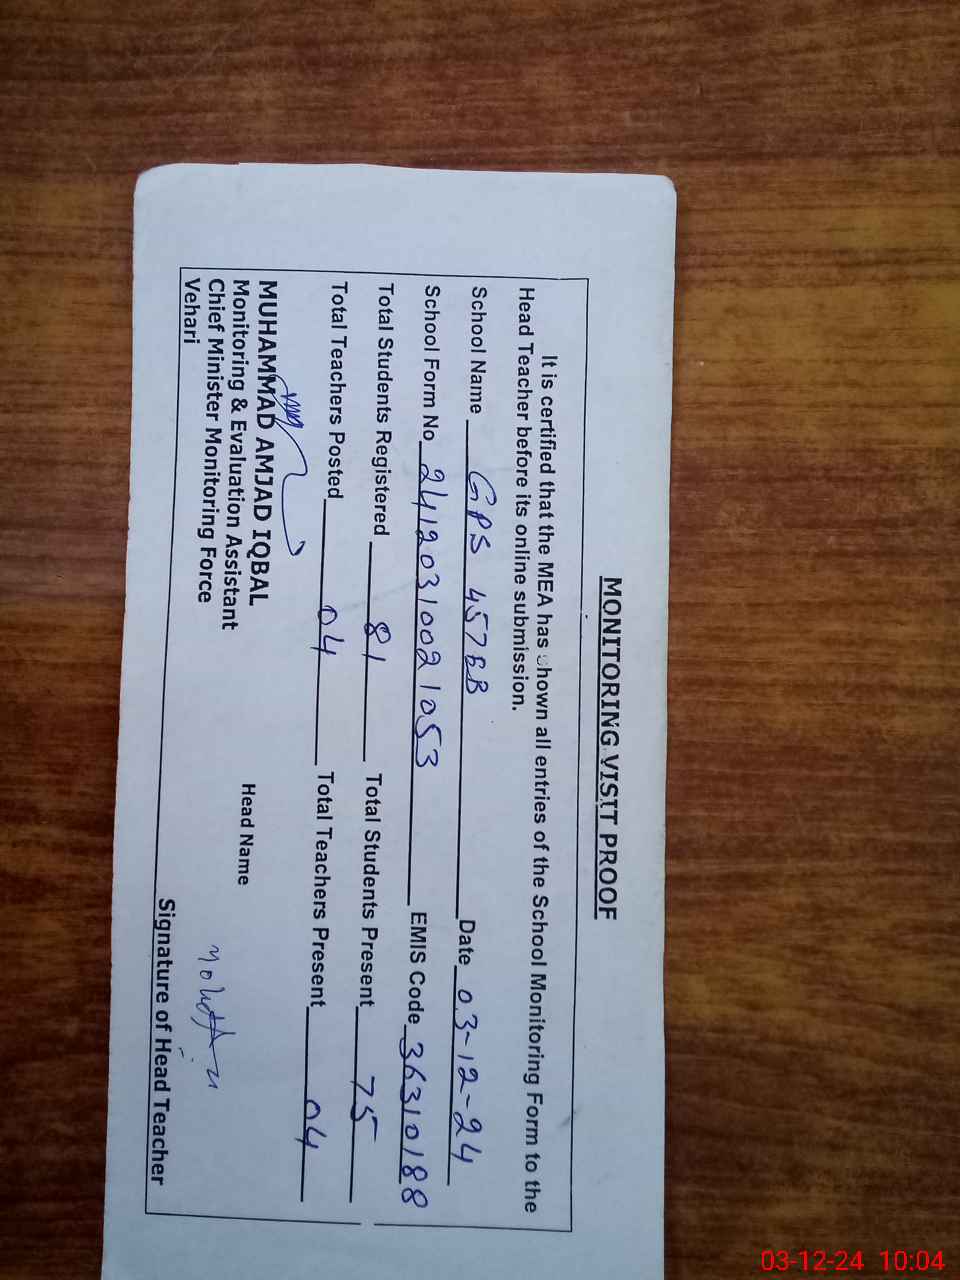 MONITORING VISIT PROOF
It is certified that the MEA has shown all entries of the School Monitoring Form to the
Head Teacher before its online submission.
School Name GPS 457EB Date 03-12-24
School Form No 24120310021053 EMIS Code 36310188
Total Students Registered 81 Total Students Present 75
Total Teachers Posted 04 Total Teachers Present 04
MUHAMMAD AMJAD IQBAL
Monitoring & Evaluation Assistant Head Name
Chief Minister Monitoring Force
Vehari
Signature of Head Teacher
03-12-24 10:04